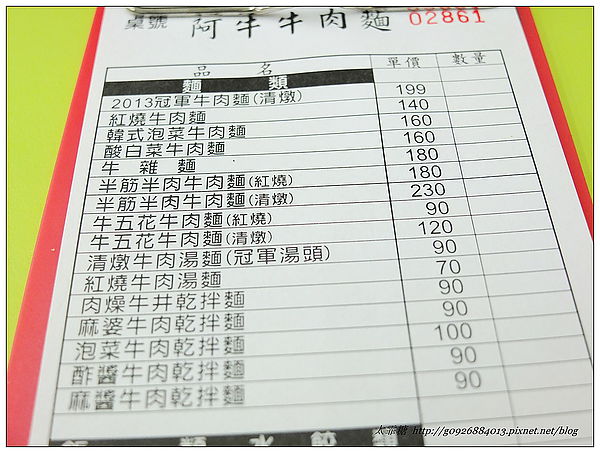 桌號 阿牛牛肉麵 02861
品 名 單價 數量
麵 類
2013冠軍牛肉麵(清燉) 199
紅燒牛肉麵 140
韓式泡菜牛肉麵 160
酸白菜牛肉麵 160
牛 雜 麵 180
半筋半肉牛肉麵(紅燒) 180
半筋半肉牛肉麵(清燉) 230
牛五花牛肉麵(紅燒) 90
牛五花牛肉麵(清燉) 120
清燉牛肉湯麵(冠軍湯頭) 90
紅燒牛肉湯麵 70
肉燥牛丼乾拌麵 90
麻婆牛肉乾拌麵 90
泡菜牛肉乾拌麵 100
酢醬牛肉乾拌麵 90
麻醬牛肉乾拌麵 90
http://g0926884013.pixnet.net/blog